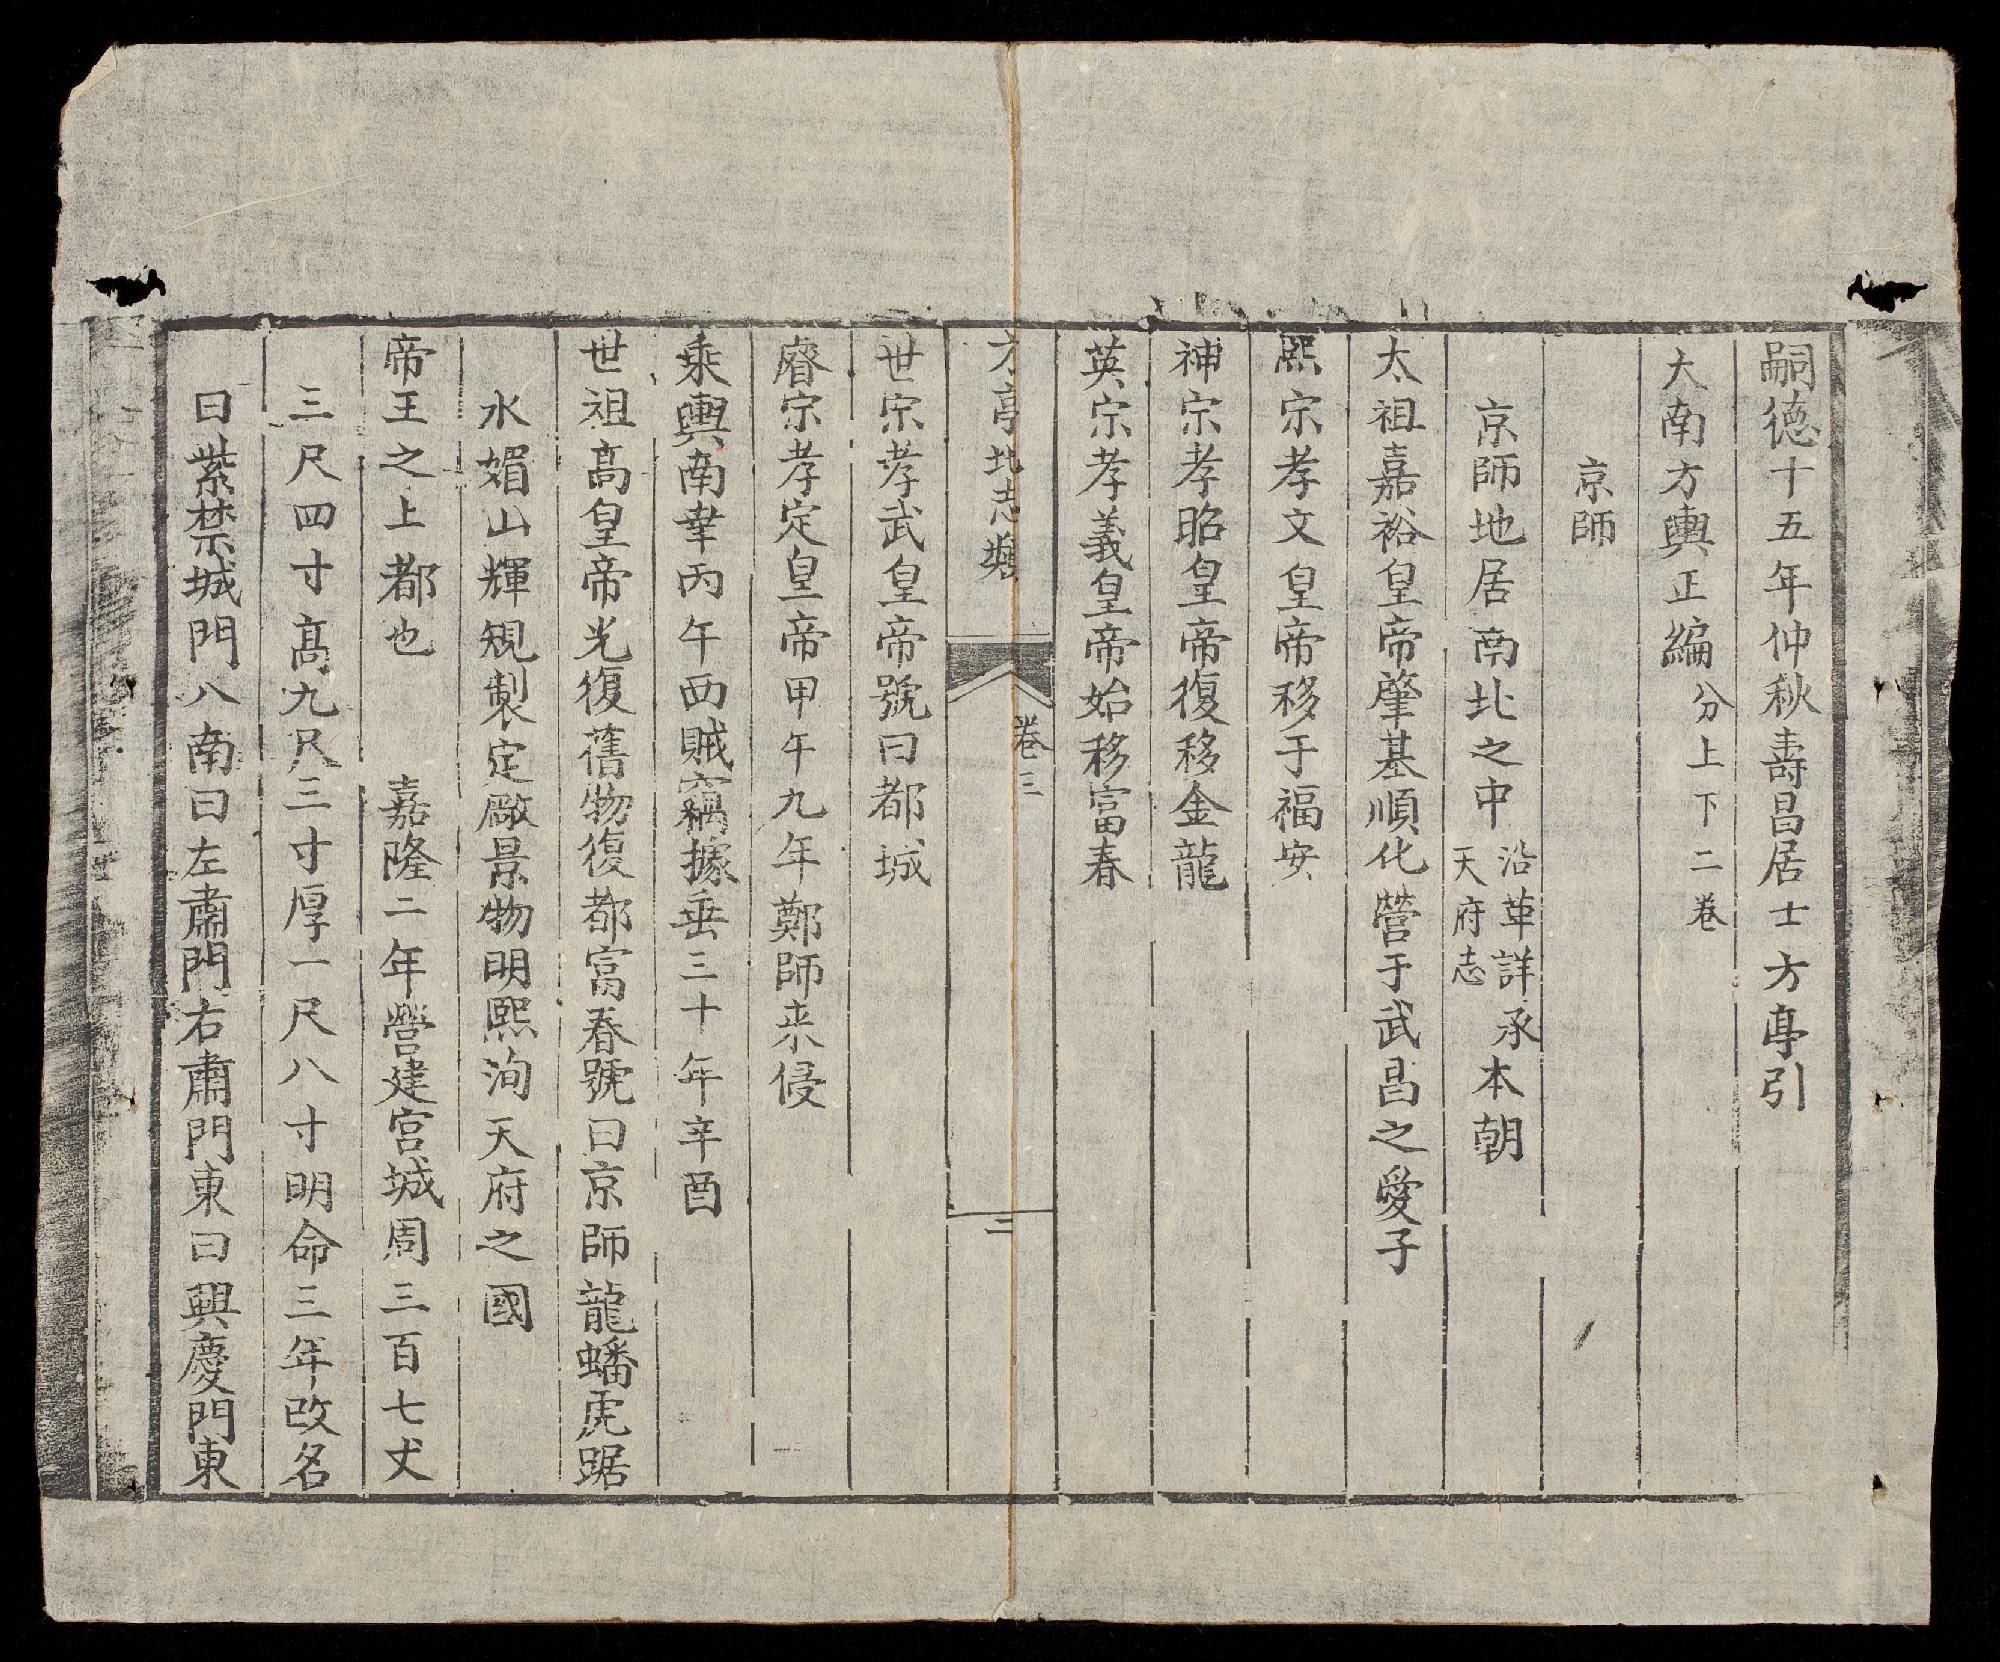 嗣德十五年仲秋壽昌居士方亭引
大南方輿正編分上下二卷
京師
京師地居南北之中沿革詳承天府志本朝
太祖嘉裕皇帝肇基順化營于武昌之愛子
熙宗孝文皇帝移于福安
神宗孝昭皇帝復移金龍
英宗孝義皇帝始移富春
方亭地志類
卷三
三
世宗孝武皇帝號曰都城
睿宗孝定皇帝甲午九年鄭師来侵
乘輿南幸丙午西賊竊據垂三十年辛酉
世祖高皇帝光復舊物復都富春號曰京師龍蟠虎踞
水媚山輝規製定厰景物明熙洵天府之國
帝王之上都也 嘉隆二年營建宫城周三百七丈
三尺四寸高九尺三寸厚一尺八寸明命三年改名
曰紫禁城門八南曰左肅門右肅門東曰興慶門東